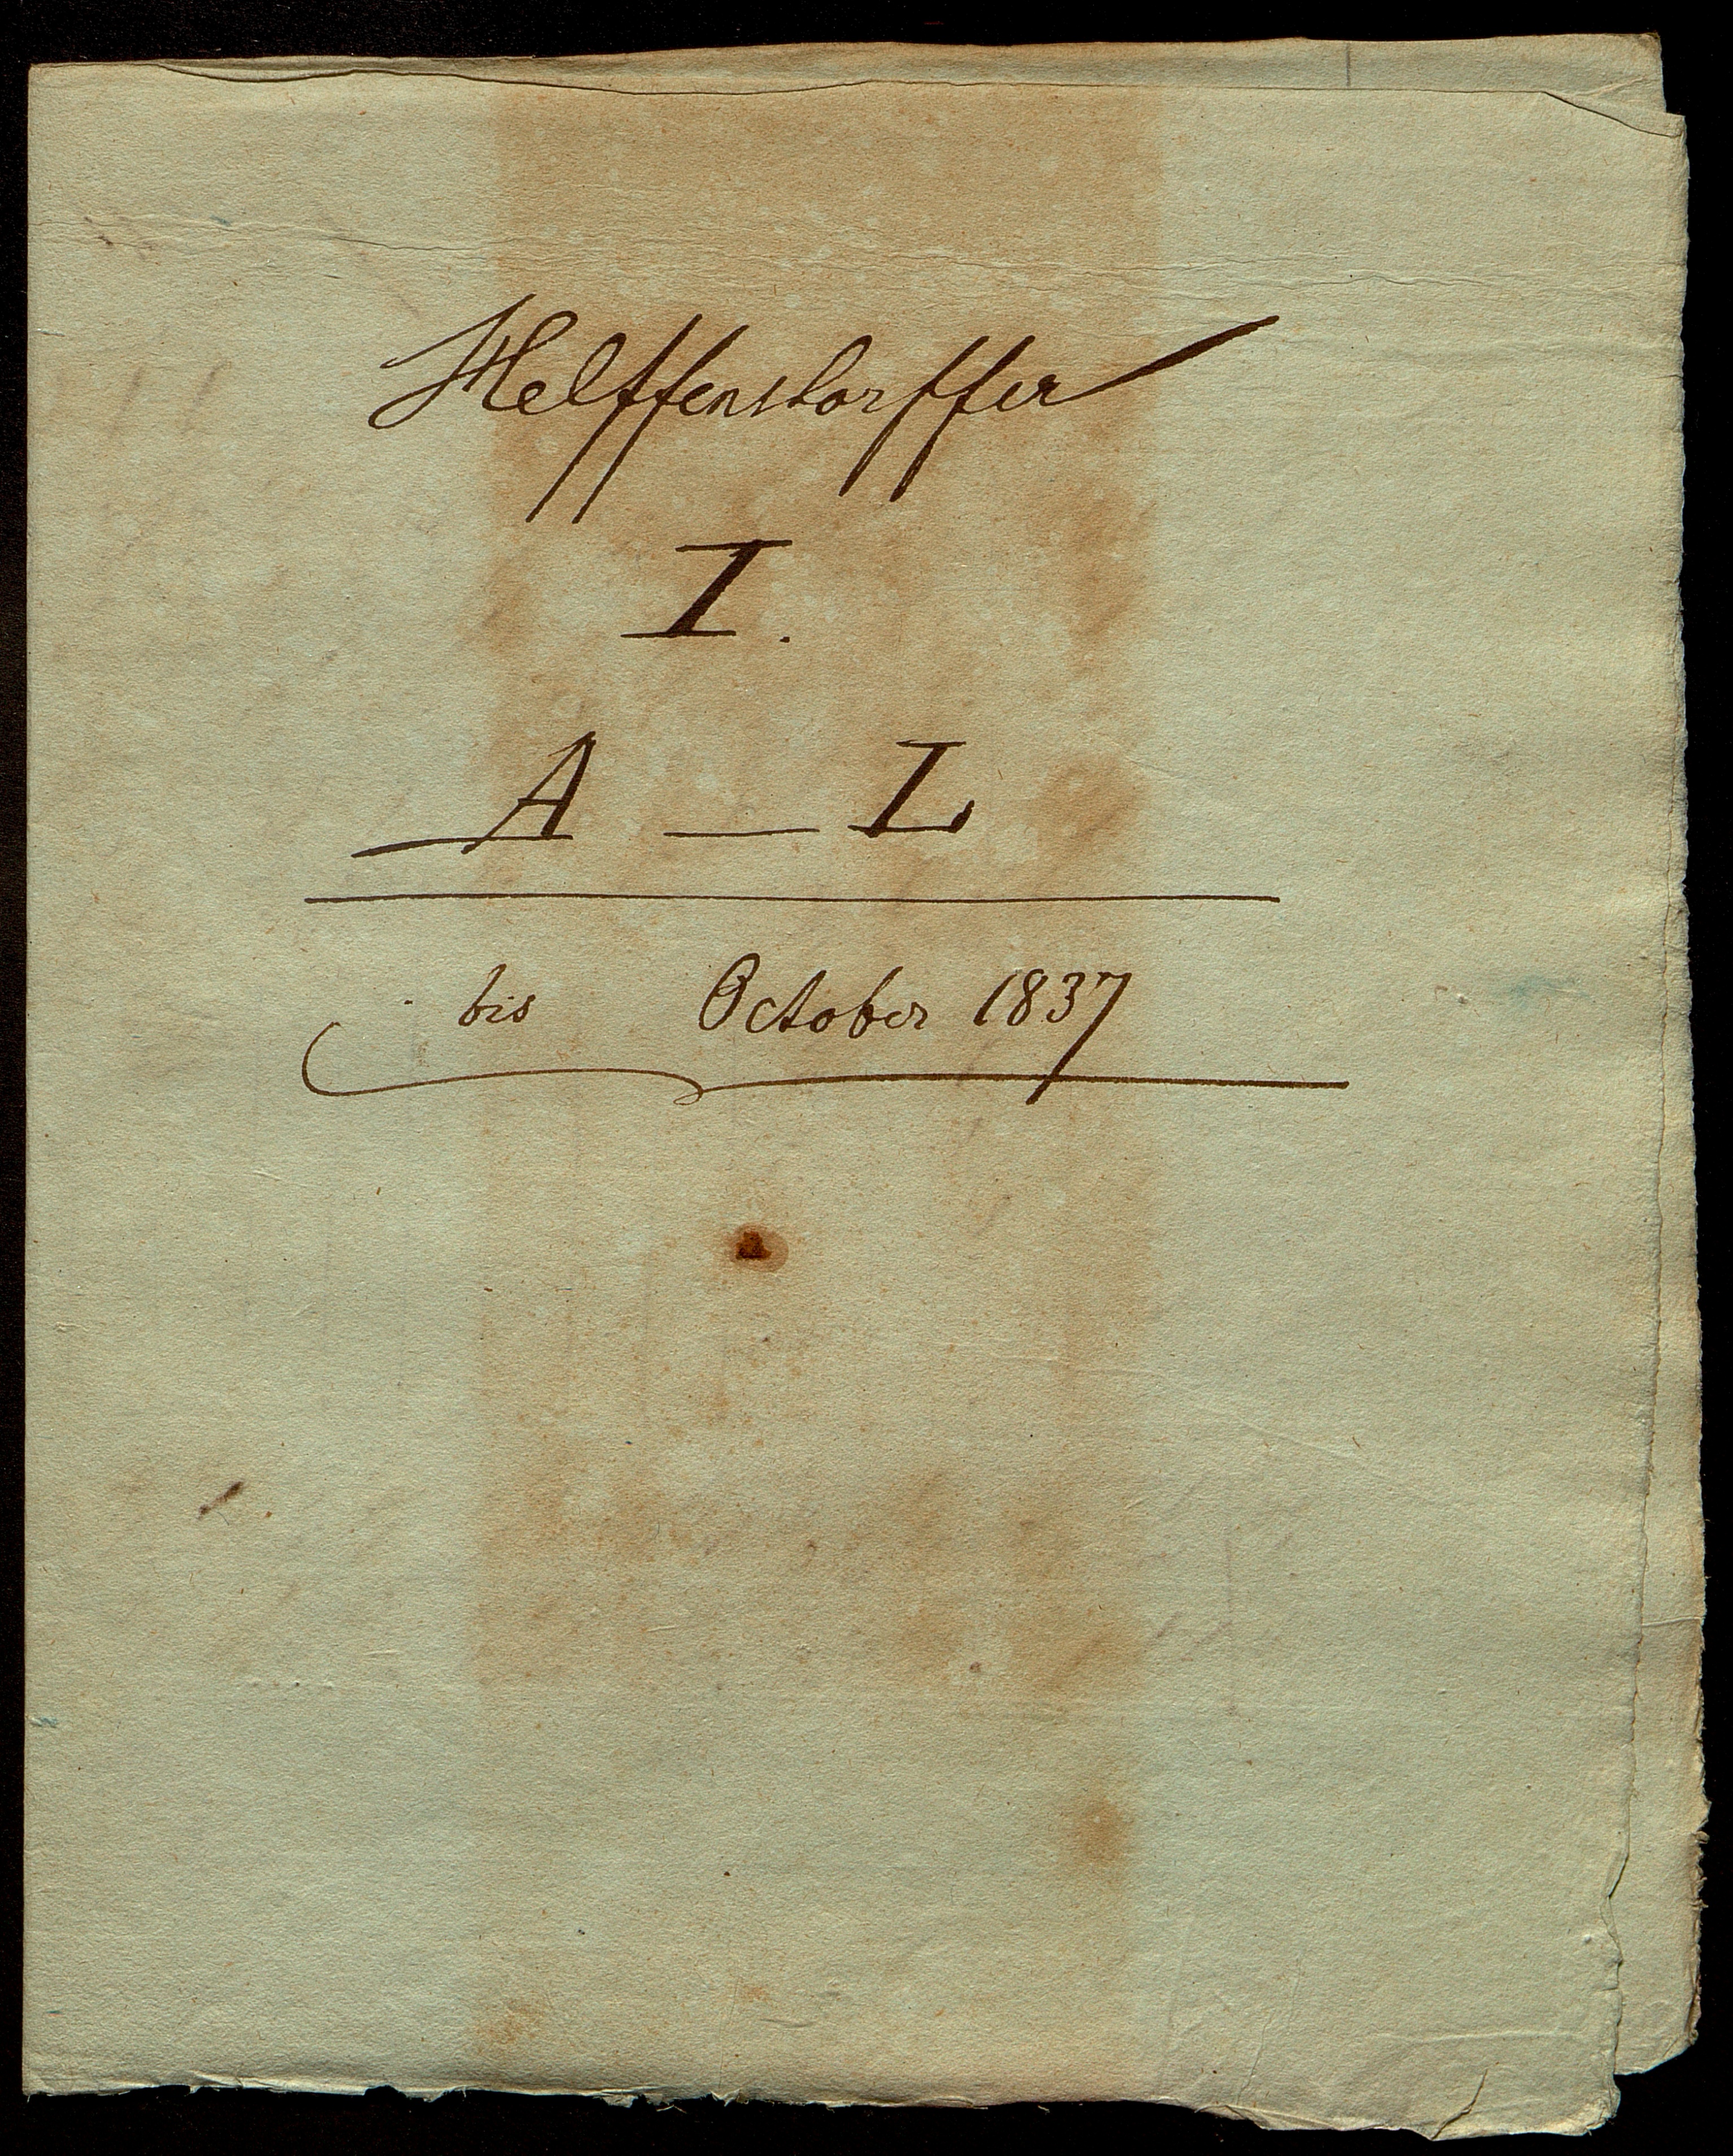 Helffenstorffer
I.
A — L
bis October 1837